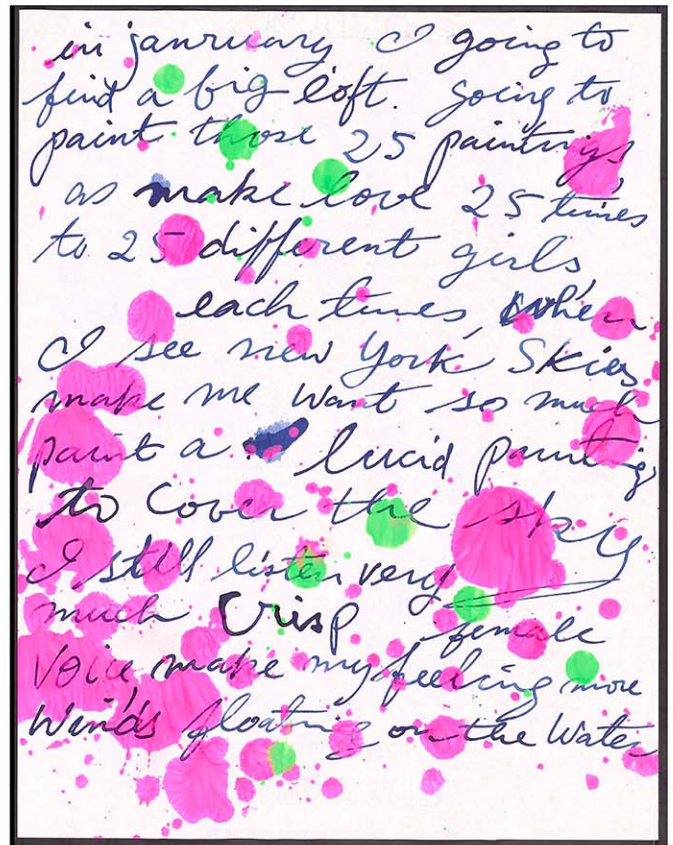 in janruary I going to
find a big loft. going to
paint those 25 paintings
as make love 25 times
to 25 different girls,
each times, when
I see new York Skies
make me want so much
paint a lucid painting
to cover the sky
I still listen very
much Crisp female
Voice make my feeling more
Winds floating on the Water